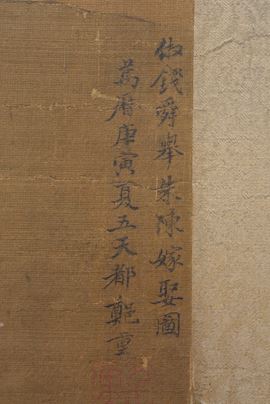 倣錢舜舉朱陳嫁娶圖
萬曆庚寅夏五天都鄭重